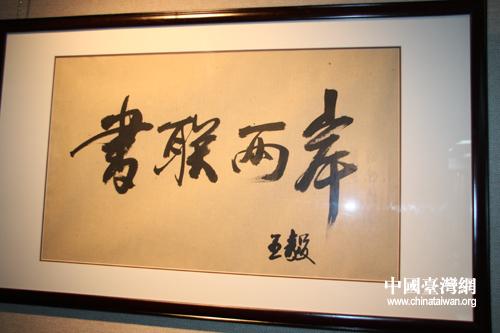 书联两岸
王毅
中國臺灣網
www.chinataiwan.org